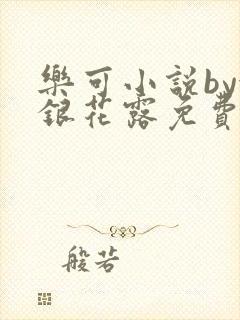 樂可小說by
銀花露免費
般若